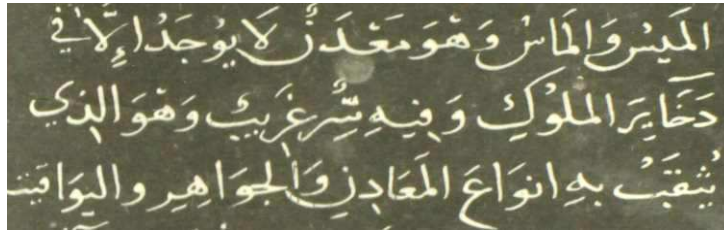 المَيسْ وَالمَاسْ وَهْوَ مَعْدَنٌ لَا يوُجَدُ اِلَّا في
دَخَايِرَ المْلُوكِ وَفِيهِ سِّر غَرِيبْ وَهْوَ الذِي
يُثقَبْ بِهِ انوَاعَ المَعَادِنِ وَالجَوَاهِرِ واليَوَاقيت